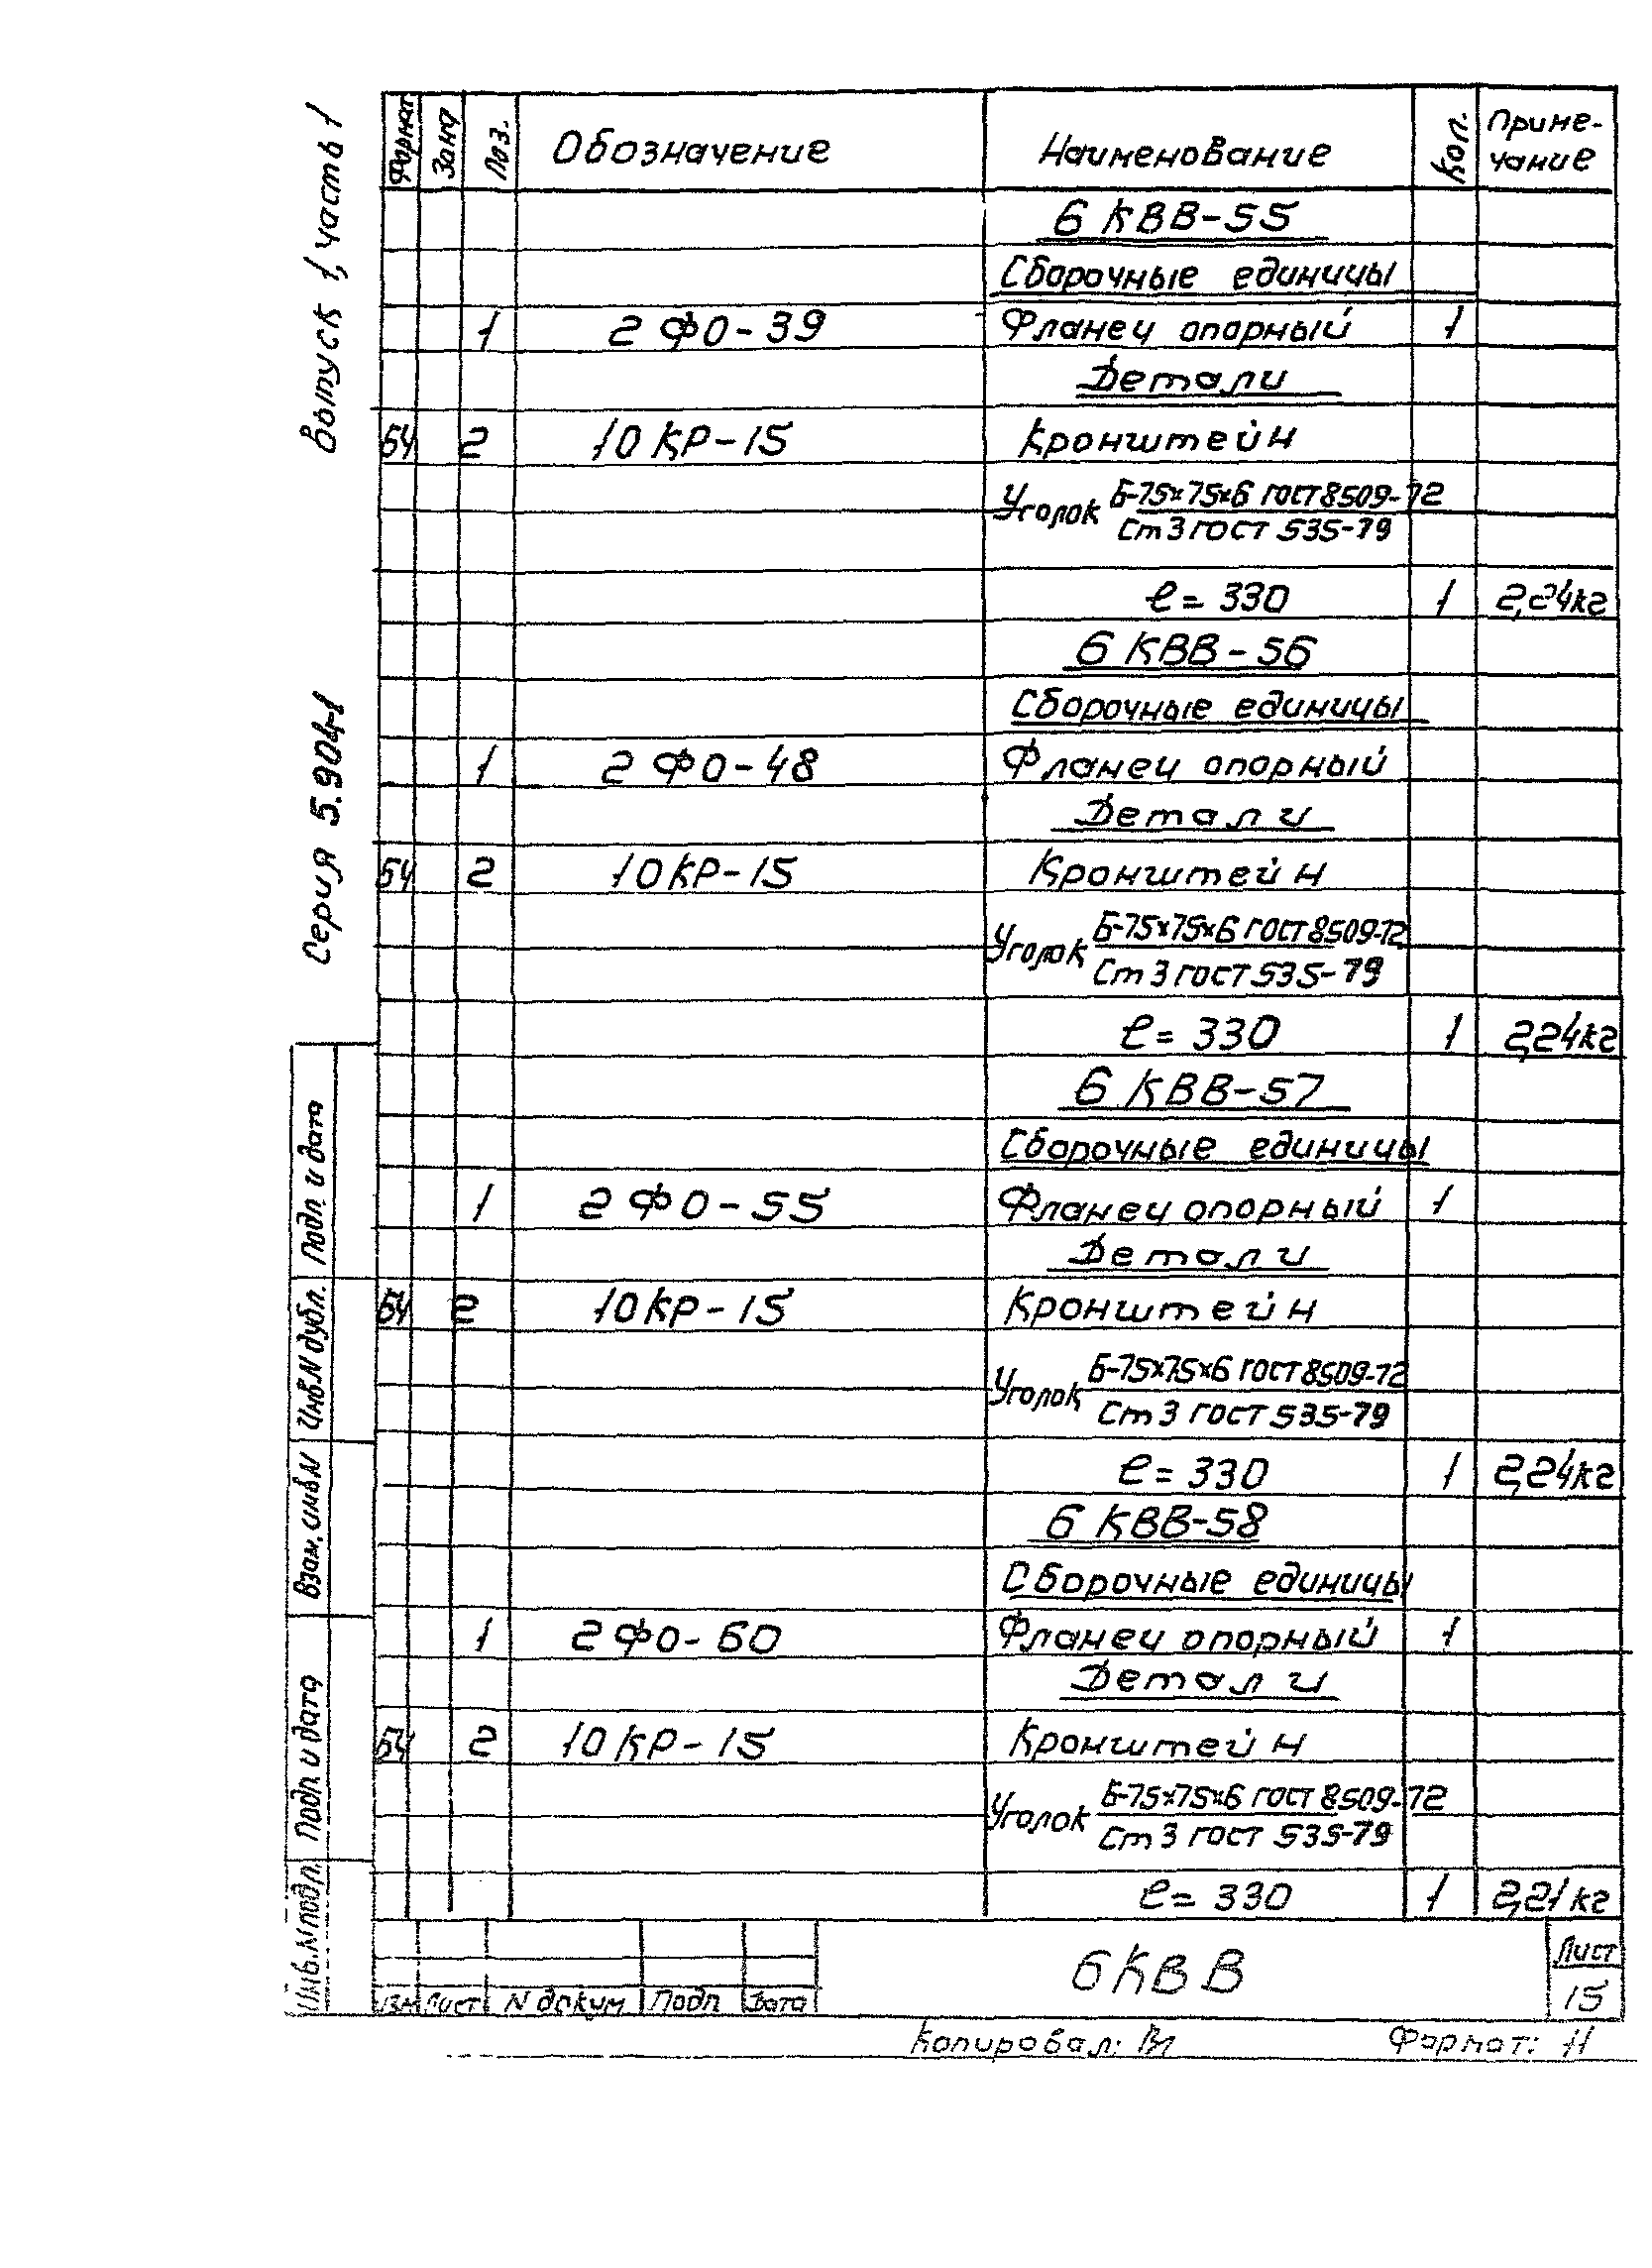 Выпуск 1, часть 1
Серия 5.904-1
Формат Зона Поз. Обозначение Наименование Кол. Приме-
чание
6 КВВ-55
Сборочные единицы
1 2 ФО-39 Фланец опорный 1
Детали
БЧ 2 10 КР-15 Кронштейн
Уголок Б-75х75х6 ГОСТ 8509-72
Ст 3 ГОСТ 535-79
ℓ= 330 1 2,24кг
6 КВВ-56
Сборочные единицы
1 2 ФО-48 Фланец опорный
Детали
БЧ 2 10КР-15 Кронштейн
Уголок Б-75х75х6 ГОСТ 8509-72
Ст 3 ГОСТ 535-79
ℓ= 330 1 2,24кг
6 КВВ-57
Сборочные единицы
1 2 ФО-55 Фланец опорный 1
Детали
БЧ 2 10КР-15 Кронштейн
Уголок Б-75х75х6 ГОСТ 8509-72
Ст 3 ГОСТ 535-79
ℓ= 330 1 2,24кг
6 КВВ-58
Сборочные единицы
1 2 ФО-60 Фланец опорный 1
Детали
БЧ 2 10КР-15 Кронштейн
Уголок Б-75х75х6 ГОСТ 8509-72
Ст 3 ГОСТ 535-79
ℓ= 330 1 2,21кг
Подп. и дата
Инв.N дубл.
Взам. инв.N
Подп. и дата
Инв.N подл.
Изм Лист N докум Подп Дата
6КВВ
Лист
15
Копировал:
Формат: 11